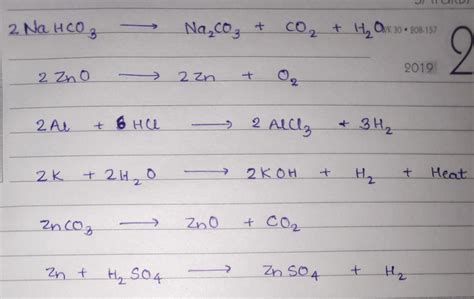 2NaHCO₃ ⟶ Na₂CO₃ + CO₂ + H₂O
2019
2ZnO ⟶ 2Zn + O₂
2Al + 6HCl ⟶ 2AlCl₃ + 3H₂
2K + 2H₂O ⟶ 2KOH + H₂ + Heat
ZnCO₃ ⟶ ZnO + CO₂
Zn + H₂SO₄ ⟶ ZnSO₄ + H₂